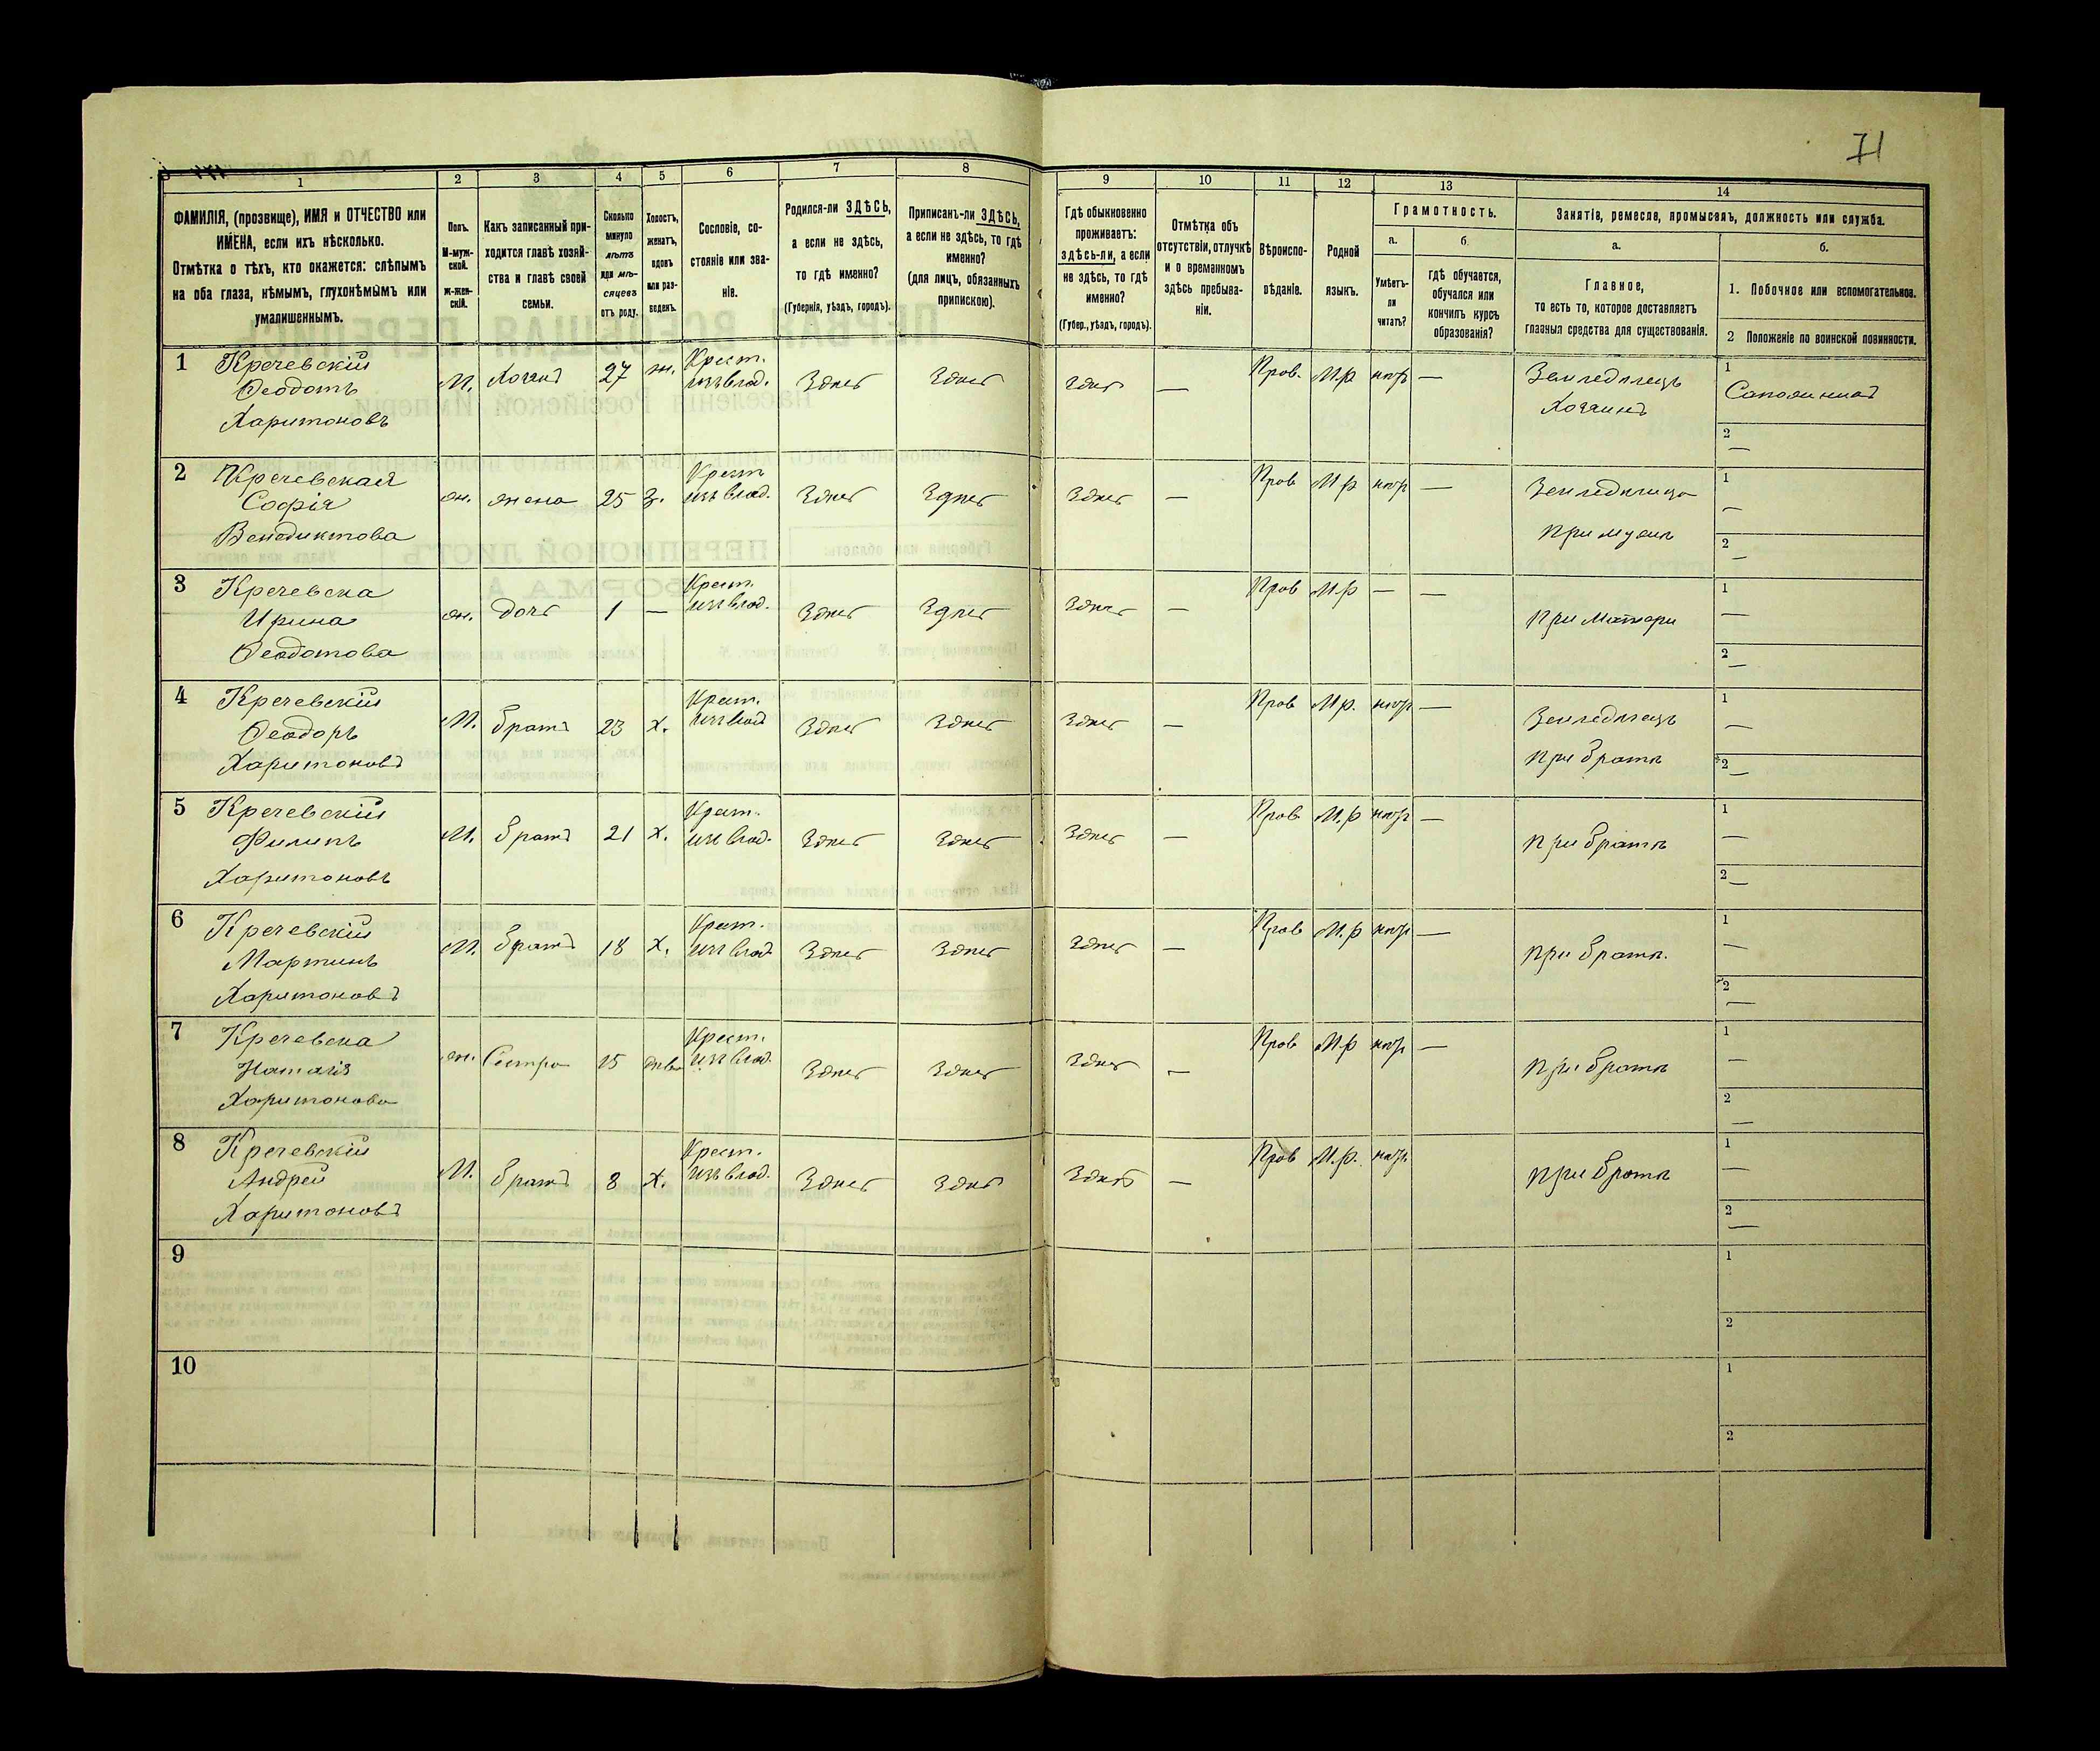 71
1 2 3 4 5 6 7 8 9 10 11 12 13 14
ФАМИЛІЯ, (прозвище), ИМЯ и ОТЧЕСТВО или
ИМЕНА, если ихъ нѣсколько.
Отмѣтка о тѣхъ, кто окажется: слѣпымъ
на оба глаза, нѣмымъ, глухонѣмымъ или
умалишеннымъ.
Полъ.
М-муж-
ской.
ж-жен-
скій.
Какъ записанный при-
ходится главѣ хозяй-
ства и главѣ своей
семьи.
Сколько
минуло
лѣтъ
или мѣ-
сяцевъ
отъ роду.
Холостъ,
женатъ,
вдовъ
или раз-
веденъ.
Сословіе, со-
стояніе или зва-
ніе.
Родился-ли ЗДѢСЬ,
а если не здѣсь,
то гдѣ именно?
(Губернія, уѣздъ, городъ).
Приписанъ-ли ЗДѢСЬ,
а если не здѣсь, то гдѣ
именно?
(для лицъ, обязанныхъ
припискою).
Гдѣ обыкновенно
проживаетъ:
здѣсь-ли, а если
не здѣсь, то гдѣ
именно?
(Губер., уѣздъ, городъ).
Отмѣтка объ
отсутствіи, отлучкѣ
и о временномъ
здѣсь пребыва-
ніи.
Вѣроиспо-
вѣданіе.
Родной
языкъ.
Грамотность.
а.
Умѣетъ-
ли
читать?
б.
гдѣ обучается,
обучался или
кончилъ курсъ
образованія?
Занятіе, ремесло, промыселъ, должность или служба.
а.
Главное,
то есть то, которое доставляетъ
главныя средства для существованія.
б.
1. Побочное или вспомогательное.
2 Положеніе по воинской повинности.
1 Кречевскій
Ѳеодотъ
Харитоновъ
М. Хозяинъ 27 ж. Крест.
изъ влад. Здѣсь Здѣсь Здѣсь — Прав. М.р нѣтъ —
Земледѣлецъ
Хозяинъ
1
2 —
2 Кречевская
Софія
Венедиктова
ж. жена 25 з. Крест
изъ влад. Здѣсь Здѣсь Здѣсь — Прав М р нѣтъ —
Земледѣлица
При мужѣ
1 —
2 —
3 Кречевска
Ирина
Ѳеодотова
ж. дочь 1 — Крест.
изъ влад. Здѣсь Здѣсь Здѣсь — Прав М р — —
При матери
1 —
2 —
4 Кречевскій
Ѳеодоръ
Харитоновъ
М. братъ 23 х. Крест.
изъ влад Здѣсь Здѣсь Здѣсь — Прав М р. нѣтъ —
Земледѣлецъ
При братѣ
1 —
2 —
5 Кречевскій
Филипъ
Харитоновъ
М. братъ 21 х. Крест.
изъ влад. Здѣсь Здѣсь Здѣсь — Прав М.р нѣтъ —
При братѣ
1 —
2 —
6 Кречевскій
Мартинъ
Харитоновъ
М. братъ 18 х. Крест.
изъ влад Здѣсь Здѣсь Здѣсь — Прав М.р нѣтъ —
При братѣ.
1 —
2 —
7 Кречевска
Наталія
Харитонова
ж. Сестра 15 дѣва Крест.
изъ влад. Здѣсь Здѣсь Здѣсь — Прав М р нѣтъ —
При братѣ
1 —
2 —
8 Кречевскій
Андрей
Харитоновъ
М. братъ 8 х. Крест.
изъ влад. Здѣсь Здѣсь Здѣсь — Прав М.р. нѣтъ
При братѣ
1 —
2 —
9
1
2
10
1
2